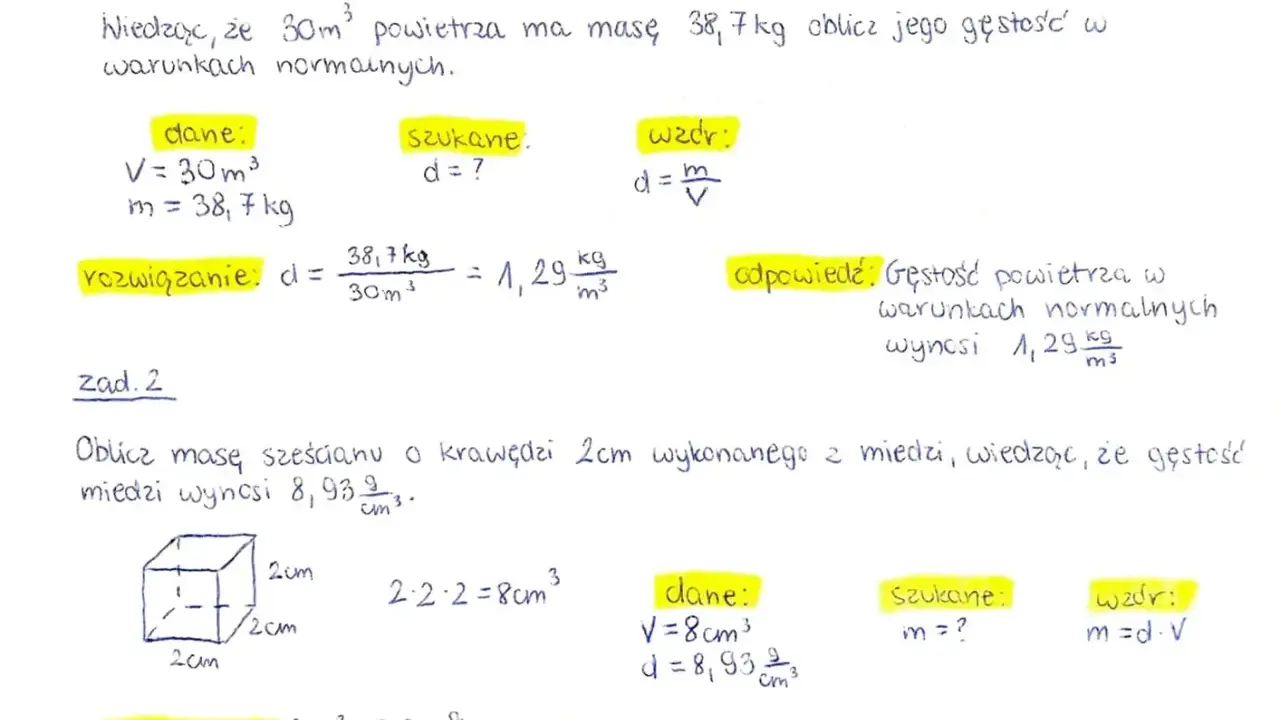 Wiedząc, że 30m³ powietrza ma masę 38,7kg oblicz jego gęstość w
warunkach normalnych.
dane: szukane: wzór:
V = 30m³ d = ? d = m/V
m = 38,7kg
rozwiązanie: d = 38,7kg/30m³ = 1,29 kg/m³ odpowiedź: Gęstość powietrza w
warunkach normalnych
wynosi 1,29 kg/m³
zad. 2
Oblicz masę sześcianu o krawędzi 2cm wykonanego z miedzi, wiedząc, że gęstość
miedzi wynosi 8,93 g/cm³.
2cm
2cm
2cm
2·2·2=8cm³
dane: szukane: wzór:
V = 8cm³ m = ? m = d·V
d = 8,93 g/cm³